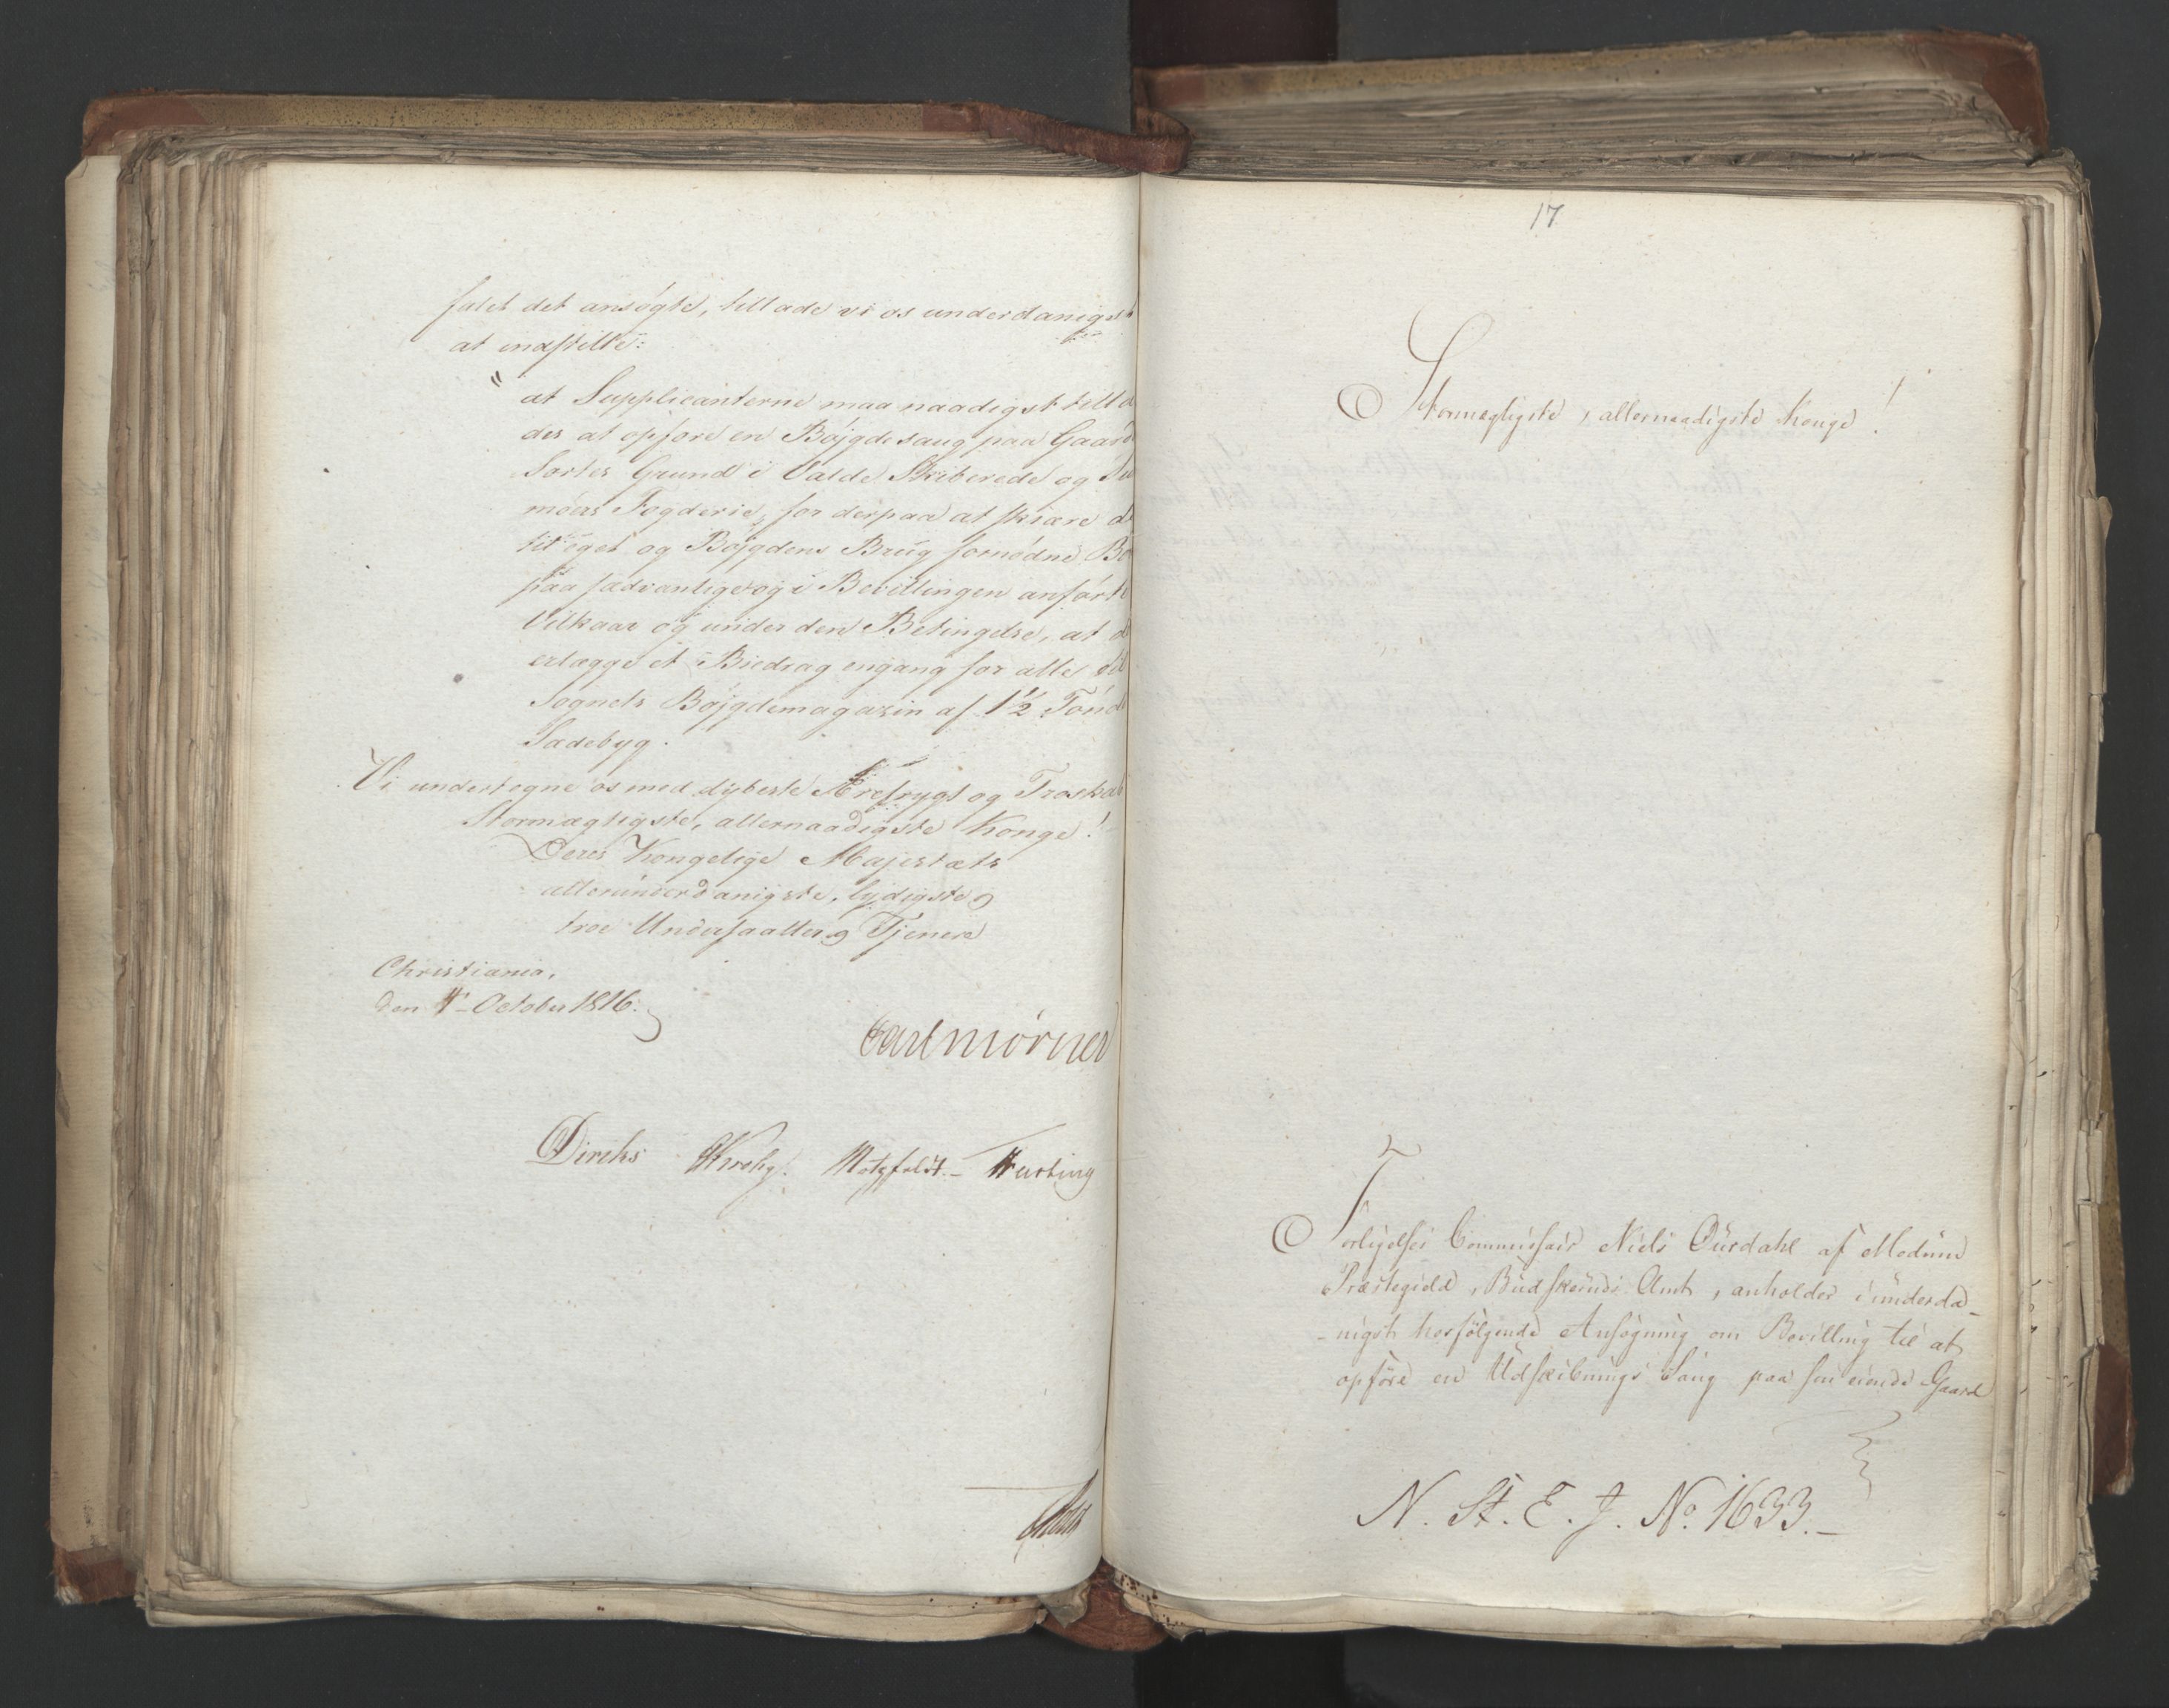 falet det ansøgte, tillade vi os underdanigst
at indstille:
"at Supplicanterne maa naadigst tilla
des at opføre en Bøjgdesaug paa Gaard
Sortes Grund i Valde Skiberede og
møers Fogderie, for derpaa at skiære d
til eget og Bøjgdens Brug fornødne
paa sædvanlige og i Bevillingen anførte
Vilkaar og under den Betingelse, at d
erlægge et Biedrag engang for alle til
Sognets Bøjgdemagazin af 1½ Tønd
Sædebyg.
Vi undertegne os med dybeste Ærefrygt og Troskab
Stormægtigste, allernaadigste Konge!
Deres Kongelige Majestæts
allerunderdanigste, lydigste og
troe Undersaatter og Tjenere
Christiania,
den 4de October 1816.
Carl Mörner
Diriks Krohg. Motzfeldt. Fasting
17
Stormægtigste, allernaadigste Konge!
Forligelses Commissair Niels Burdahl af Modum
Præstegield, Budskeruds Amt, anholder i underda-
-nigst hosfølgende Ansøgning om Bevilling til at
opføre en Udskibnings Saug paa sin eiende Gaard
N. St. E. J. No. 1633.-